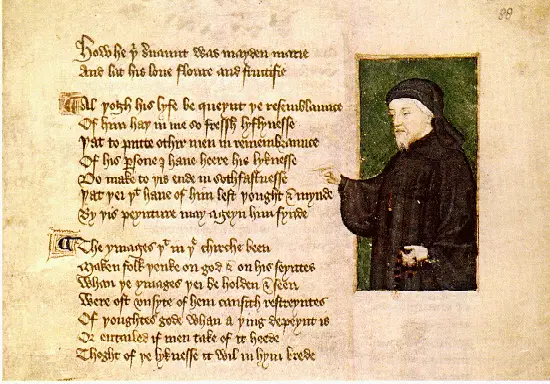 88
How he þͥ s̉uaunt was mayden marie
And lat his loue floure and fructifie
Al þogh his lyfe be queynt þe resemblaunce
Of him haþ in me so fressh lyflynesse
Þat to putte othir men in remembraunce
Of his ꝑsone I haue heere his lyknesse
Do make to þis ende in sothfastnesse
Þat þei þͭ haue of him left þought & mynde
By þis peynture may ageyn him fynde
The ymages þͭ in þͤ chirche been
Maken folk þenke on god & on his seyntes
Whan þe ymages þei beholden & seen
Were oft vnsyte of hem causith restreyntes
Of þoughtes gode whan a þing depeynt is
Or entailed if men take of it heede
Thoght of þe lyknesse it wil in hym brede